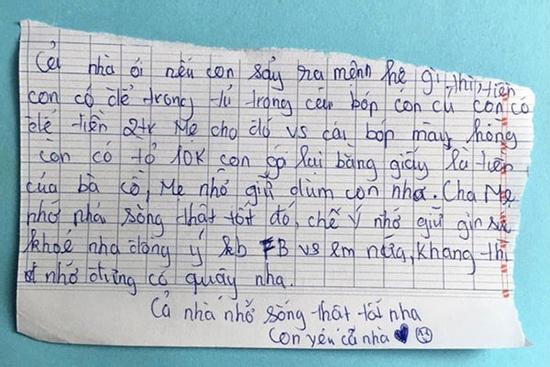 Cả nhà ơi nếu con sảy ra mệnh hệ gì thì tiền
con có để trong tủ trong cái bóp con cũ con có
để tiền 2tr Mẹ cho đó vs cái bóp màu hồng
còn có tờ 10K con gói lại bằng giấy là tiền
của bà cô, Mẹ nhớ giữ dùm con nha. Cha Mẹ
nhớ nhá sống thật tốt đó, chế Ý nhớ giữ gìn sức
khoẻ nha đồng ý kb FB vs em nữa, Khang thì
nhớ đừng có quậy nha.
Cả nhà nhớ sống thật tốt nha
Con yêu cả nhà